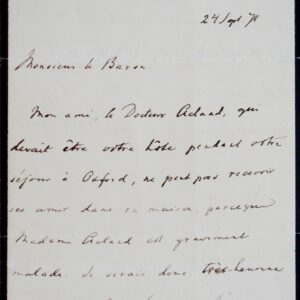 24 Sept. 78
Monsieur le Baron.
Mon ami, le Docteur Acland, qui
devait être votre hôte pendant votre
séjour à Oxford, ne peut pas recevoir
ses amis dans sa maison, parceque
Madame Acland est gravement
malade. Je serais donc très heureux